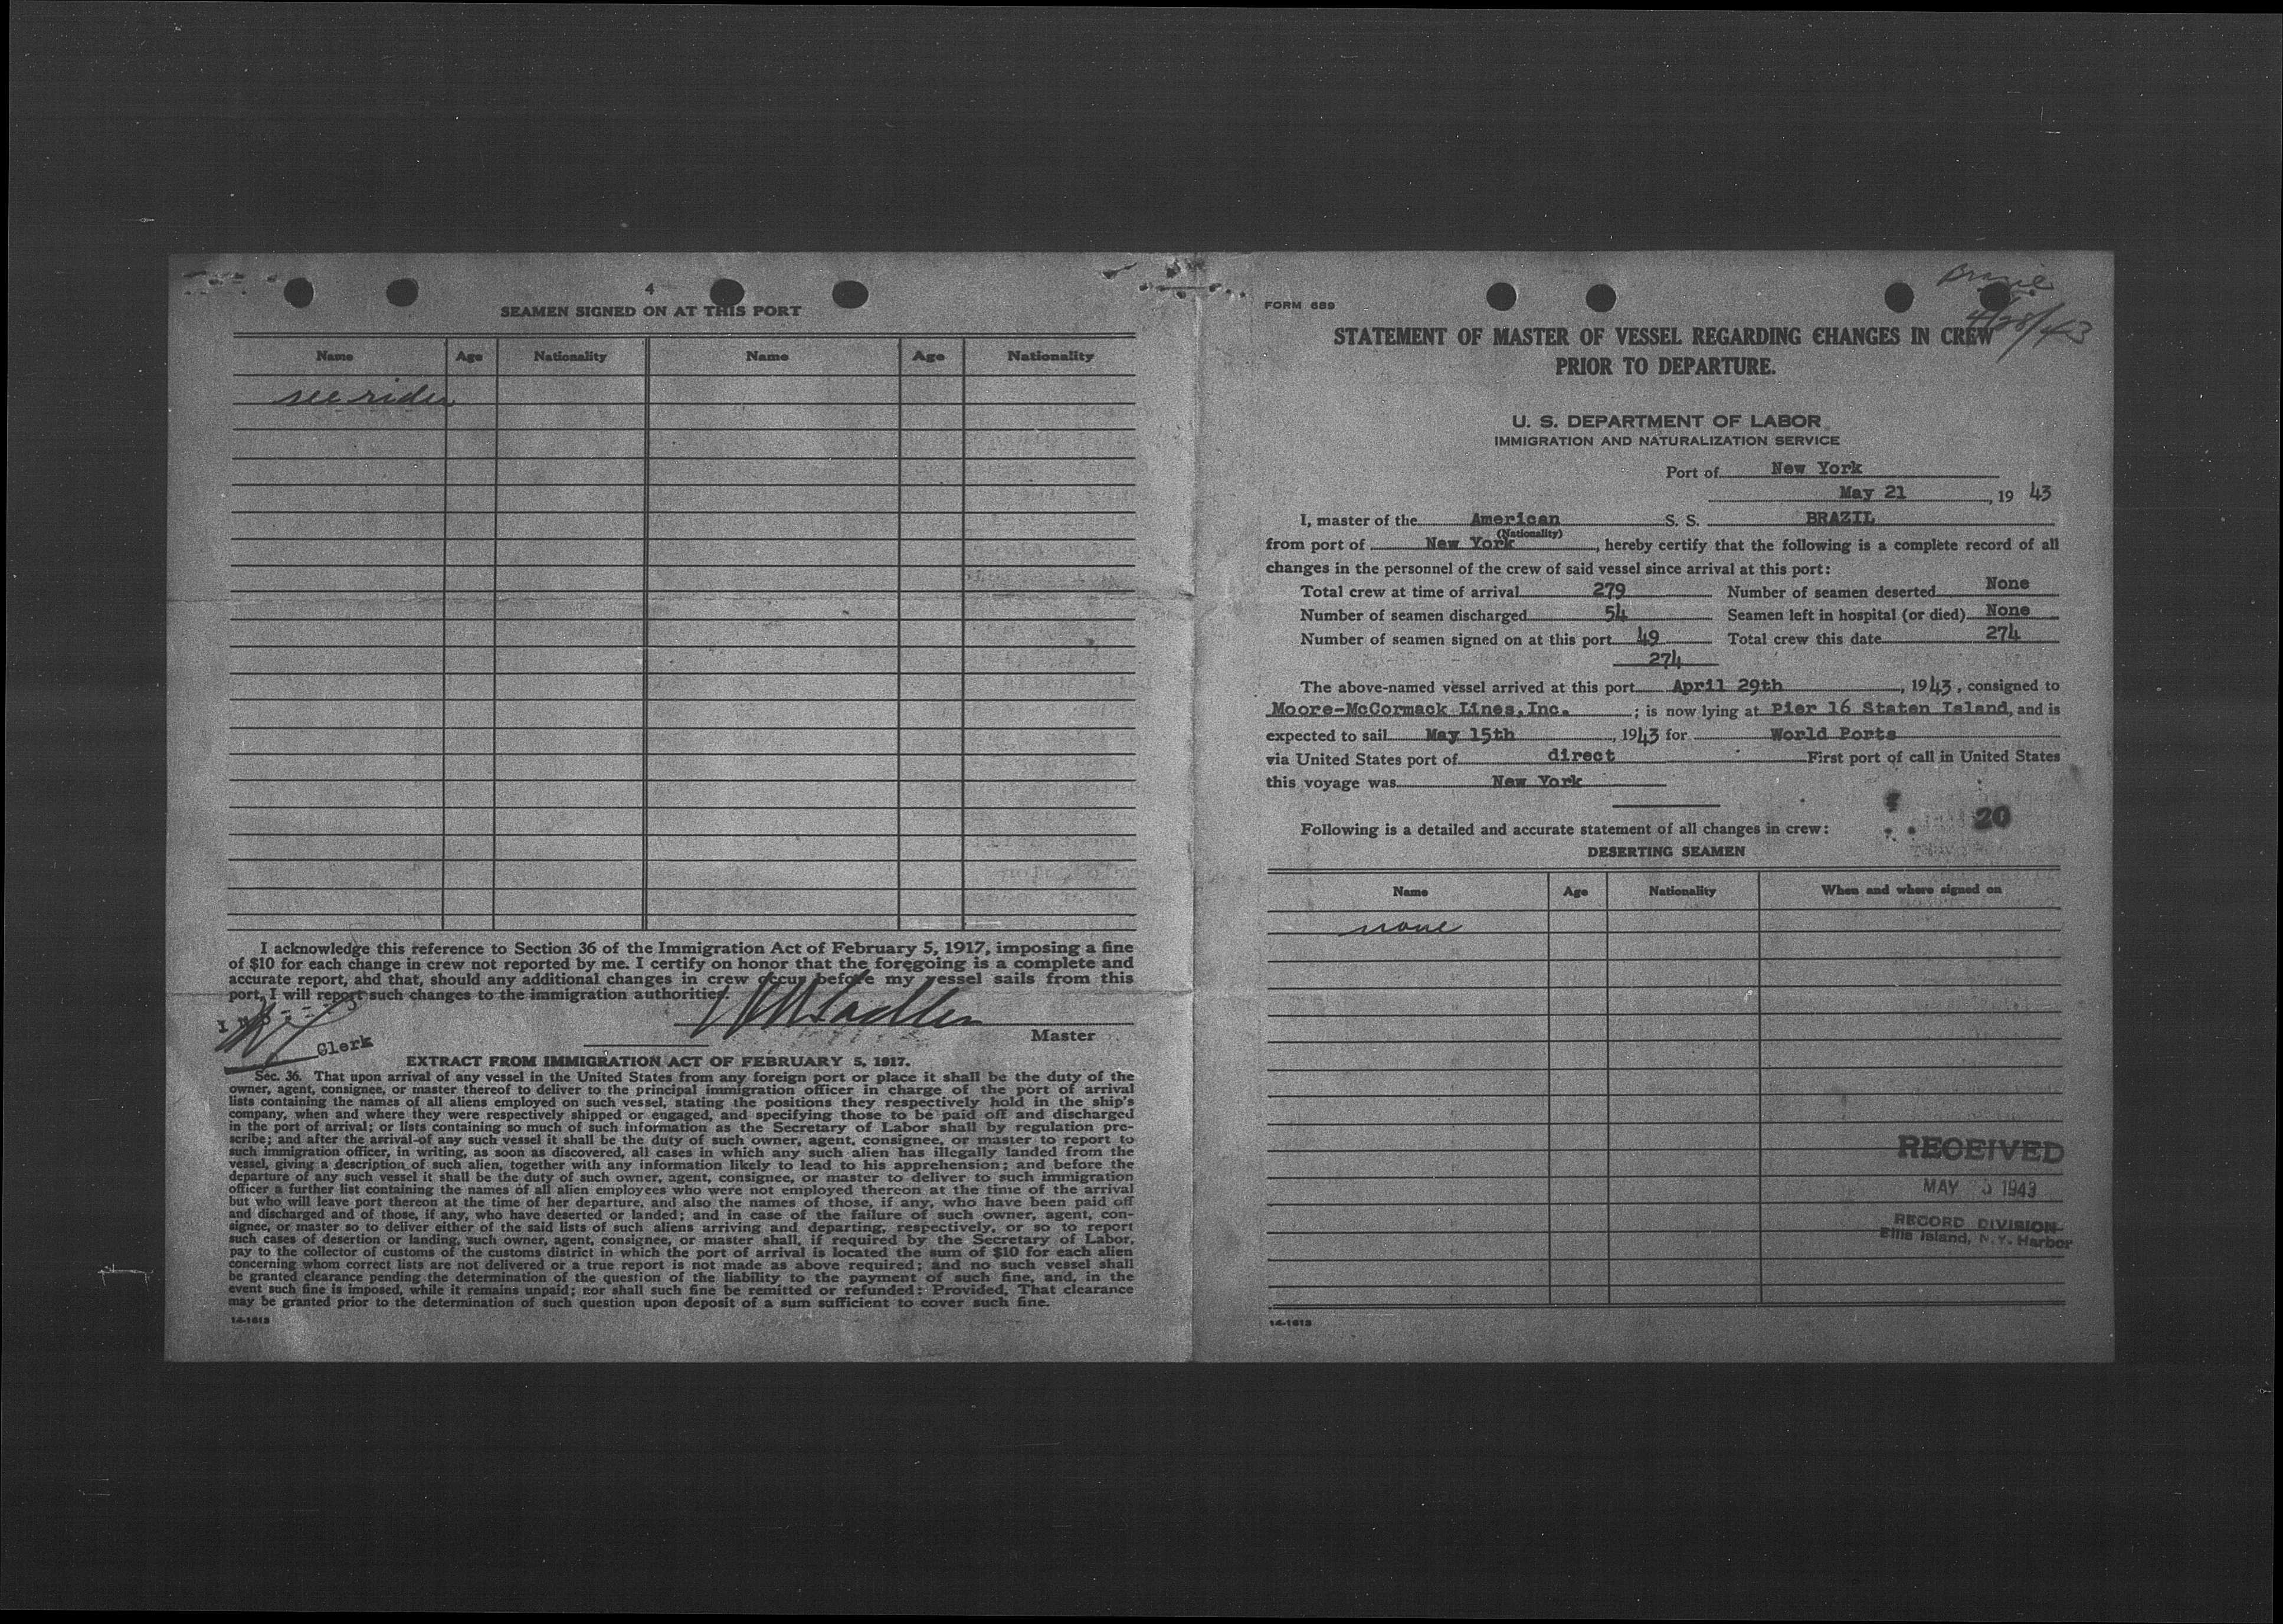 4
SEAMEN SIGNED ON AT THIS PORT
Name Age Nationality Name Age Nationality
see rider
I acknowledge this reference to Section 36 of the Immigration Act of February 5, 1917, imposing a fine
of $10 for each change in crew not reported by me. I certify on honor that the foregoing is a complete and
accurate report, and that, should any additional changes in crew occur before my vessel sails from this
port, I will report such changes to the immigration authorities.
Master
Clerk
EXTRACT FROM IMMIGRATION ACT OF FEBRUARY 5, 1917.
Sec. 36. That upon arrival of any vessel in the United States from any foreign port or place it shall be the duty of the
owner, agent, consignee, or master thereof to deliver to the principal immigration officer in charge of the port of arrival
lists containing the names of all aliens employed on such vessel, stating the positions they respectively hold in the ship's
company, when and where they were respectively shipped or engaged, and specifying those to be paid off and discharged
in the port of arrival; or lists containing so much of such information as the Secretary of Labor shall by regulation pre-
scribe; and after the arrival of any such vessel it shall be the duty of such owner, agent, consignee, or master to report to
such immigration officer, in writing, as soon as discovered, all cases in which any such alien has illegally landed from the
vessel, giving a description of such alien, together with any information likely to lead to his apprehension; and before the
departure of any such vessel it shall be the duty of such owner, agent, consignee, or master to deliver to such immigration
officer a further list containing the names of all alien employees who were not employed thereon at the time of the arrival
but who will leave port thereon at the time of her departure, and also the names of those, if any, who have been paid off
and discharged and of those, if any, who have deserted or landed; and in case of the failure of such owner, agent, con-
signee, or master so to deliver either of the said lists of such aliens arriving and departing, respectively, or so to report
such cases of desertion or landing, such owner, agent, consignee, or master shall, if required by the Secretary of Labor,
pay to the collector of customs of the customs district in which the port of arrival is located the sum of $10 for each alien
concerning whom correct lists are not delivered or a true report is not made as above required; and no such vessel shall
be granted clearance pending the determination of the question of the liability to the payment of such fine, and, in the
event such fine is imposed, while it remains unpaid; nor shall such fine be remitted or refunded: Provided, That clearance
may be granted prior to the determination of such question upon deposit of a sum sufficient to cover such fine.
14-1613
Brazil
4/28/43
FORM 689
STATEMENT OF MASTER OF VESSEL REGARDING CHANGES IN CREW
PRIOR TO DEPARTURE.
U. S. DEPARTMENT OF LABOR
IMMIGRATION AND NATURALIZATION SERVICE
Port of New York
May 21, 19 43
I, master of the American S. S. BRAZIL
(Nationality)
from port of New York, hereby certify that the following is a complete record of all
changes in the personnel of the crew of said vessel since arrival at this port:
Total crew at time of arrival 279 Number of seamen deserted None
Number of seamen discharged 54 Seamen left in hospital (or died) None
Number of seamen signed on at this port 49 Total crew this date 274
274
The above-named vessel arrived at this port April 29th, 1943, consigned to
Moore-McCormack Lines, Inc.; is now lying at Pier 16 Staten Island, and is
expected to sail May 15th, 1943 for World Ports
via United States port of direct First port of call in United States
this voyage was New York
20
Following is a detailed and accurate statement of all changes in crew:
DESERTING SEAMEN
Name Age Nationality When and where signed on
none
RECEIVED
MAY 5 1943
RECORD DIVISION
Ellis Island, N.Y. Harbor
14-1613